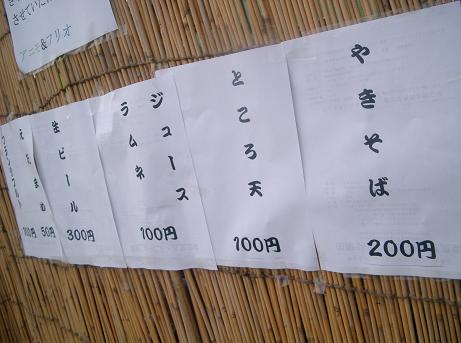 やきそば
200円
ところ天
100円
ジュース
ラムネ
100円
生ビール
300円
えだまめ
50円
100円
させていた
アニモ&フリオ